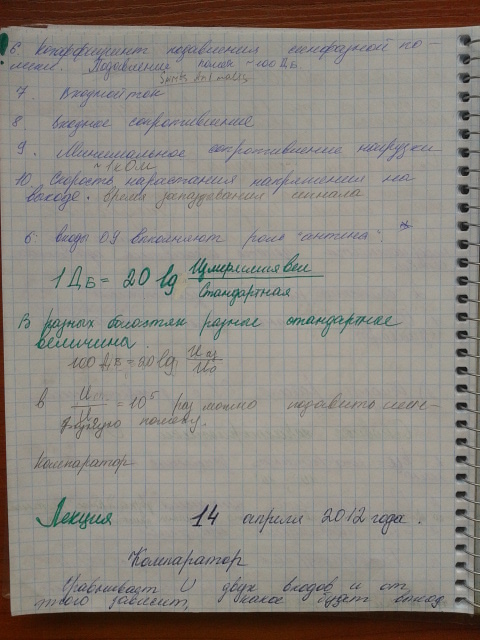 6. Коэффициент подавления синфазной по-
мехи. Подавление помех ~100 Дб
7. Входной ток
8 Входное сопротивление
9. Минимальное сопротивление нагрузки
~1кОм
10. Скорость нарастания напряжения на
выходе. время запаздывания сигнала
6: входы ОУ выполняют роль "антенн". *
1 Дб = 20 lg Измеримая вел
Стандартная
В разных областях разные стандартные
величина.
100 Дб = 20 lg
U0
в = 10⁵ раз можно подавить
помеху.
Компаратор
Лекция 14 апреля 2012 года.
Компаратор
Сравнивает U двух входов и от
этого зависит, какое будет выход